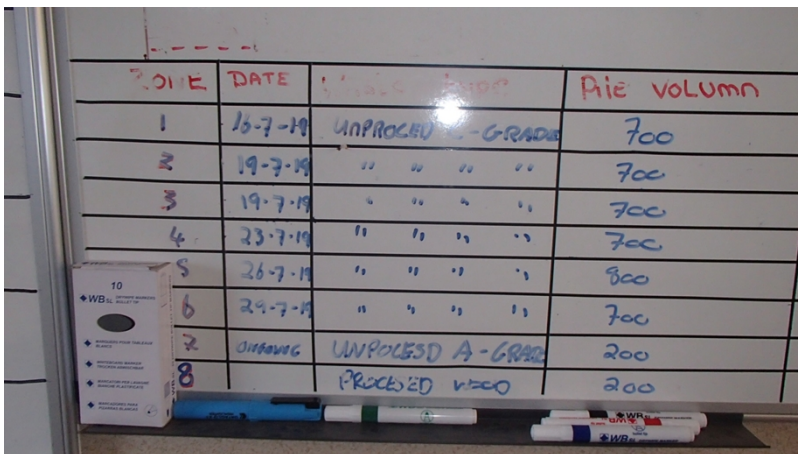 ZONE DATE PILE VOLUMN
1 16-7-19 UNPROCED -GRADE 700
2 19-7-19 " " " " 700
3 19-7-19 " " " " 700
4 23-7-19 " " " " 700
5 26-7-19 " " " " 800
6 29-7-19 " " " " 700
7 ONGOING UNPOCESD A-GRADE 200
8 PROCESED WOOD 200
10
WB SL
BULLET TIP
WB
WB